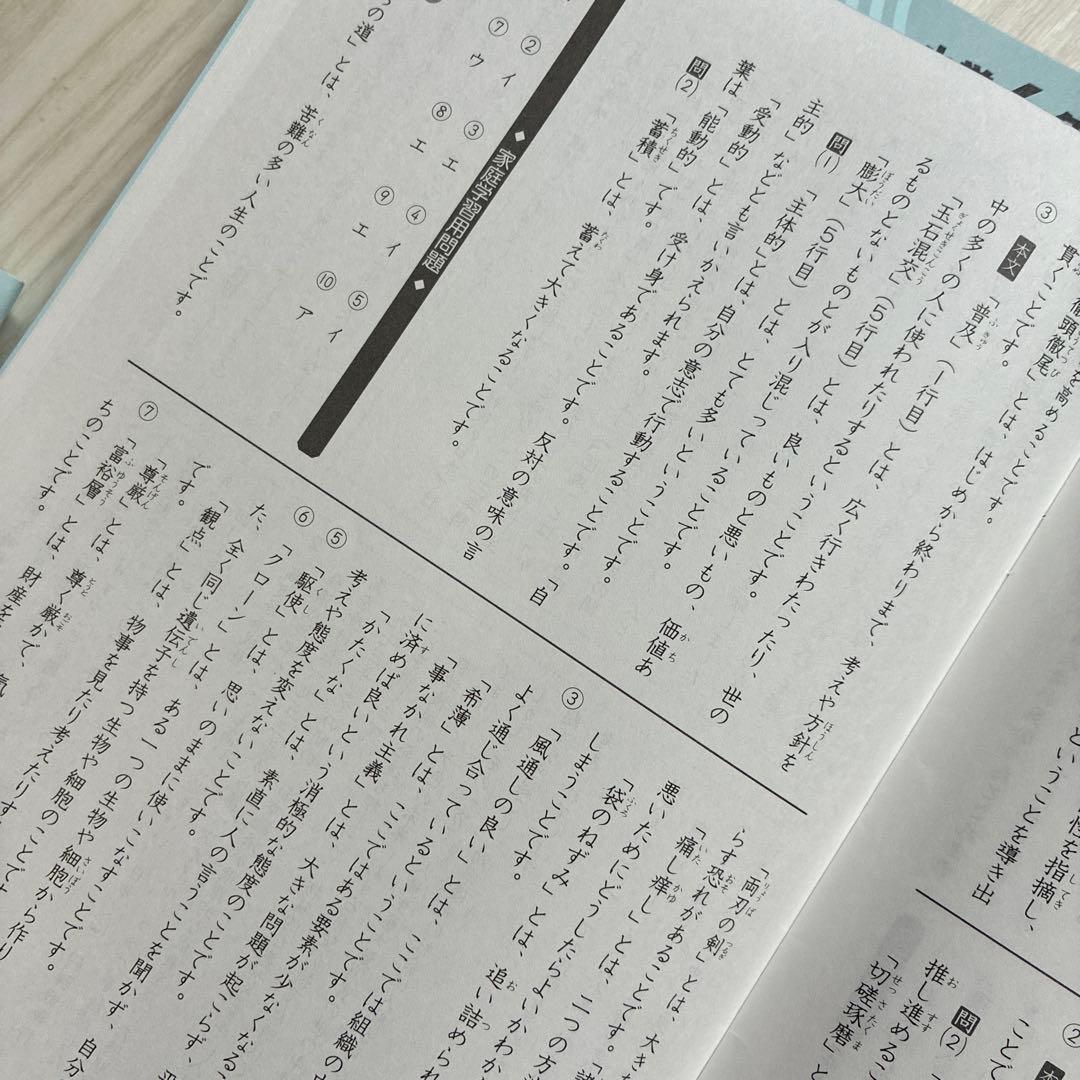 を高めることです。
徹頭徹尾」とは、はじめから終わりまで、考えや方針を
貫くことです。
③ 本文 「普及」(1行目)とは、広く行きわたったり、世の
中の多くの人に使われたりするということです。
「玉石混交」(5行目)とは、良いものと悪いもの、価値あ
るものとないものとが入り混じっていることです。
「膨大」(5行目)とは、とても多いということです。
問(1) 「主体的」とは、自分の意志で行動することです。「自
主的」などとも言いかえられます。反対の意味の言
葉は「能動的」です。
「受動的」とは、受け身であることです。
問(2) 「蓄積」とは、蓄えて大きくなることです。
◆家庭学習用問題◆
② イ ③ エ ④ イ ⑤ イ
⑦ ウ ⑧ エ ⑨ エ ⑩ ア
の道」とは、苦難の多い人生のことです。
性を指摘し、
ということを導き出
らす恐れがあることです。
「両刃の剣」とは、大き
悪いためにどうしたらよいかわか
「痛し痒し」とは、二つの方
しまうことです。
「袋のねずみ」とは、追い詰められ
③ 「風通しの良い」とは、ここでは組織の
よく通じ合っているということです。
「希薄」とは、ここではある要素が少なくなる
「事なかれ主義」とは、大きな問題が起こらず、
に済めば良いという消極的な態度のことです。
⑤ 「かたくな」とは、素直に人の言うことを聞かず、自分
考えや態度を変えないことです。
⑥ 「駆使」とは、思いのままに使いこなすことです。
「クローン」とは、ある一つの生物や細胞から作り
た、全く同じ遺伝子を持つ生物や細胞のことです。
「観点」とは、物事を見たり考えたりす
です。
⑦ 「尊厳」とは、尊く厳かで、
「富裕層」とは、財産を
ちのことです。
②
ことで
問(2)
推し進めるこ
「切磋琢磨」と